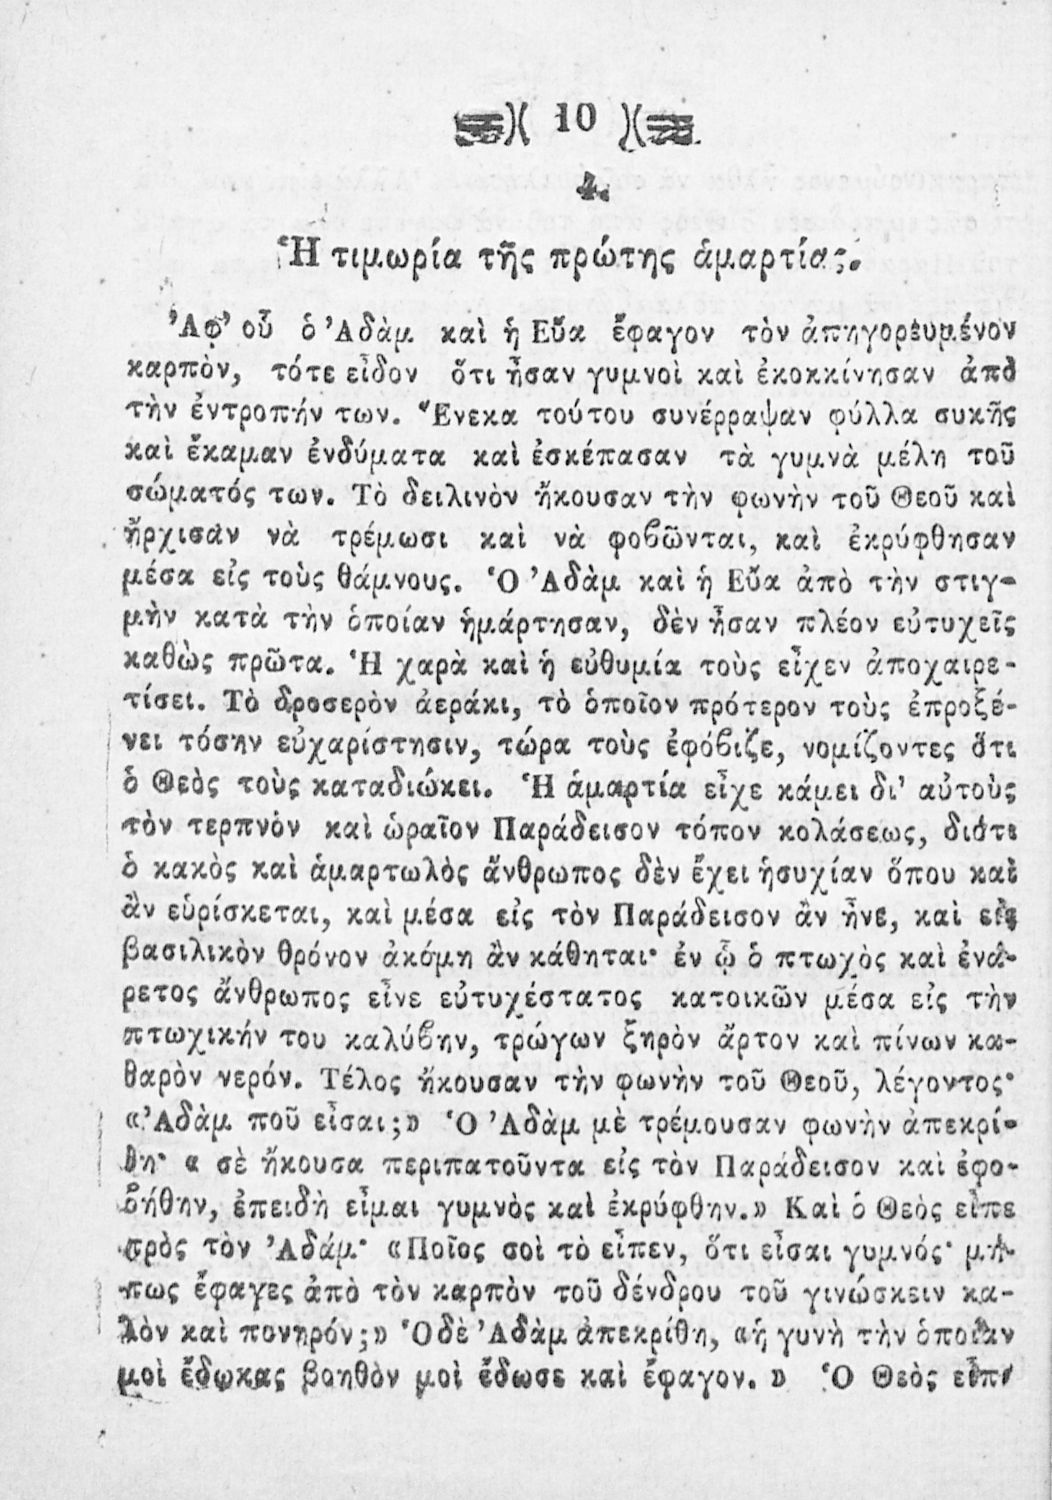 10
4.
Ἡ τιμωρία τῆς πρώτης ἁμαρτίας.
Ἀφ’ οὗ ὁ Ἀδὰμ καὶ ἡ Εὔα ἔφαγον τὸν ἀπηγορευμένον
καρπὸν, τότε εἶδον ὅτι ἦσαν γυμνοὶ καὶ ἐκοκκίνησαν ἀπὸ
τὴν ἐντροπήν των. Ἕνεκα τούτου συνέρραψαν φύλλα συκῆς
καὶ ἔκαμαν ἐνδύματα καὶ ἐσκέπασαν τὰ γυμνὰ μέλη τοῦ
σώματός των. Τὸ δειλινὸν ἤκουσαν τὴν φωνὴν τοῦ Θεοῦ καὶ
ἤρχισαν νὰ τρέμωσι καὶ νὰ φοβῶνται, καὶ ἐκρύφθησαν
μέσα εἰς τοὺς θάμνους. Ὁ Ἀδὰμ καὶ ἡ Εὔα ἀπὸ τὴν στιγ-
μὴν κατὰ τὴν ὁποίαν ἡμάρτησαν, δὲν ἦσαν πλέον εὐτυχεῖς
καθὼς πρῶτα. Ἡ χαρὰ καὶ ἡ εὐθυμία τοὺς εἶχεν ἀποχαιρε-
τίσει. Τὸ δροσερὸν ἀεράκι, τὸ ὁποῖον πρότερον τοὺς ἐπροξέ-
νει τόσην εὐχαρίστησιν, τώρα τοὺς ἐφόβιζε, νομίζοντες ὅτι
ὁ Θεὸς τοὺς καταδιώκει. Ἡ ἁμαρτία εἶχε κάμει δι’ αὐτοὺς
τὸν τερπνὸν καὶ ὡραῖον Παράδεισον τόπον κολάσεως, διότι
ὁ κακὸς καὶ ἁμαρτωλὸς ἄνθρωπος δὲν ἔχει ἡσυχίαν ὅπου καὶ
ἂν εὑρίσκεται, καὶ μέσα εἰς τὸν Παράδεισον ἂν ἦνε, καὶ εἰς
βασιλικὸν θρόνον ἀκόμη ἂν κάθηται· ἐν ᾧ ὁ πτωχὸς καὶ ἐνά-
ρετος ἄνθρωπος εἶνε εὐτυχέστατος κατοικῶν μέσα εἰς τὴν
πτωχικήν του καλύβην, τρώγων ξηρὸν ἄρτον καὶ πίνων κα-
θαρὸν νερόν. Τέλος ἤκουσαν τὴν φωνὴν τοῦ Θεοῦ, λέγοντος·
«Ἀδὰμ ποῦ εἶσαι;» Ὁ Ἀδὰμ μὲ τρέμουσαν φωνὴν ἀπεκρί-
θη· « σὲ ἤκουσα περιπατοῦντα εἰς τὸν Παράδεισον καὶ ἐφο-
βήθην, ἐπειδὴ εἶμαι γυμνὸς καὶ ἐκρύφθην.» Καὶ ὁ Θεὸς εἶπε
πρὸς τὸν Ἀδάμ· «Ποῖος σοὶ τὸ εἶπεν, ὅτι εἶσαι γυμνός· μή-
πως ἔφαγες ἀπὸ τὸν καρπὸν τοῦ δένδρου τοῦ γινώσκειν κα-
λὸν καὶ πονηρόν;» Ὁ δὲ Ἀδὰμ ἀπεκρίθη, «ἡ γυνὴ τὴν ὁποίαν
μοὶ ἔδωκας βοηθὸν μοὶ ἔδωσε καὶ ἔφαγον. » Ὁ Θεὸς εἶπε